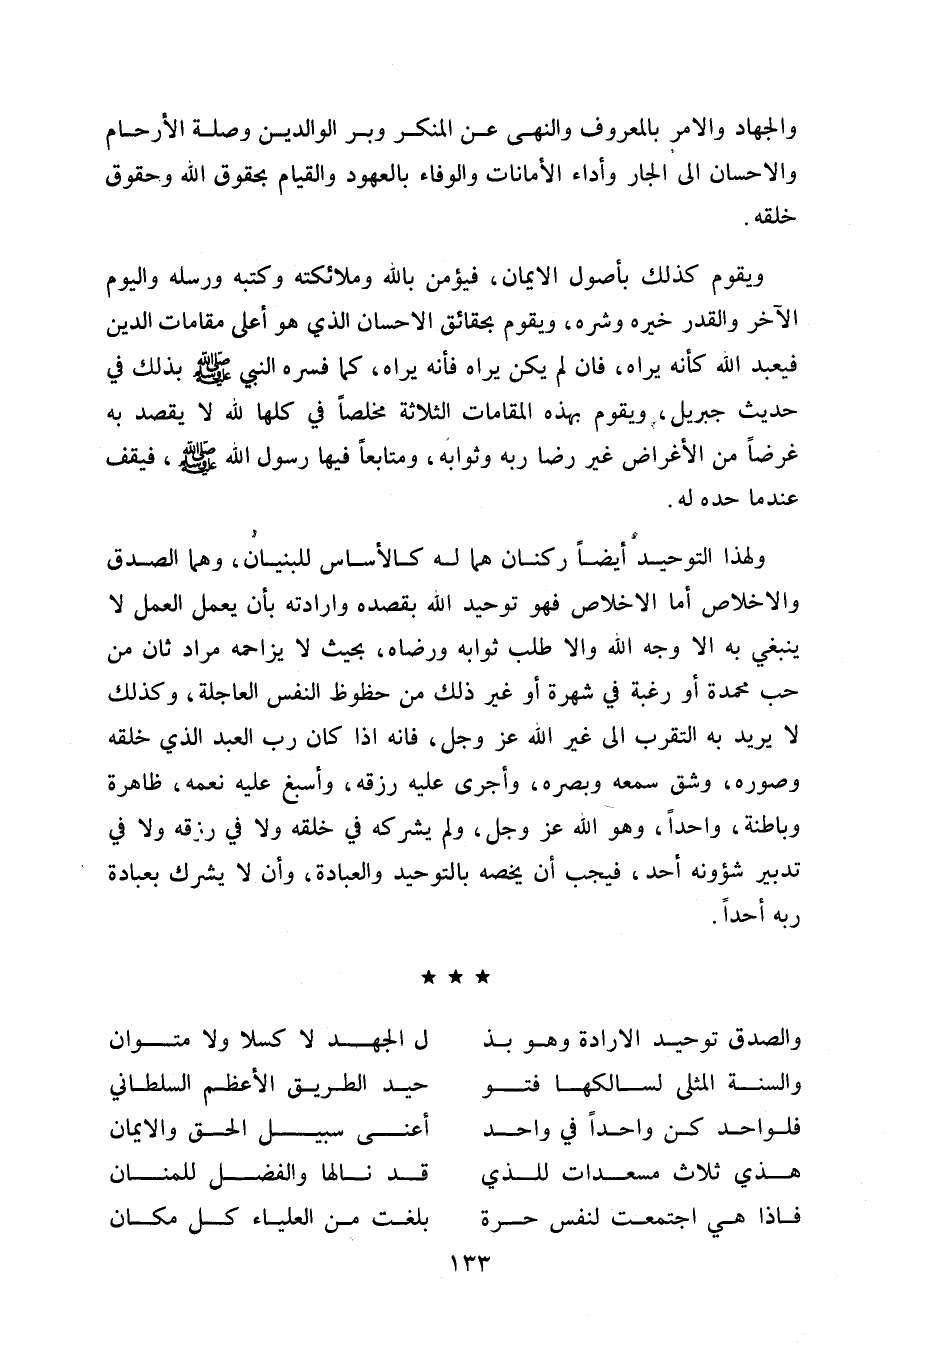 والجهاد والامر بالمعروف والنهى عن المنكر وبر الوالدين وصلة الأرحام
والاحسان الى الجار وأداء الأمانات والوفاء بالعهود والقيام بحقوق الله وحقوق
خلقه .
ويقوم كذلك بأصول الايمان، فيؤمن بالله وملائكته وكتبه ورسله واليوم
الآخر والقدر خيره وشره، ويقوم بحقائق الاحسان الذي هو أعلى مقامات الدين
فيعبد الله كأنه يراه، فان لم يكن يراه فأنه يراه، كما فسره النبي ﷺ بذلك في
حديث جبريل، ويقوم بهذه المقامات الثلاثة مخلصاً في كلها لله لا يقصد به
غرضاً من الأغراض غير رضا ربه وثوابه، ومتابعاً فيها رسول الله ﷺ ، فيقف
عندما حده له .
ولهذا التوحيد أيضاً ركنان هما له كالأساس للبنيان، وهما الصدق
والاخلاص أما الاخلاص فهو توحيد الله بقصده وارادته بأن يعمل العمل لا
ينبغي به الا وجه الله والا طلب ثوابه ورضاه، بحيث لا يزاحمه مراد ثان من
حب محمدة أو رغبة في شهرة أو غير ذلك من حظوظ النفس العاجلة، وكذلك
لا يريد به التقرب الى غير الله عز وجل، فانه اذا كان رب العبد الذي خلقه
وصوره، وشق سمعه وبصره، وأجرى عليه رزقه، وأسبغ عليه نعمه، ظاهرة
وباطنة، واحداً، وهو الله عز وجل، ولم يشركه في خلقه ولا في رزقه ولا في
تدبير شؤونه أحد، فيجب أن يخصه بالتوحيد والعبادة، وأن لا يشرك بعبادة
ربه أحداً .
★ ★ ★
والصدق توحيد الارادة وهو بذ ل الجهد لا كسلا ولا متوان
والسنة المثلى لسالكها فتو حيد الطريق الأعظم السلطاني
فلواحد كن واحداً في واحد أعنى سبيل الحق والايمان
هذي ثلاث مسعدات للذي قد نالها والفضل للمنان
فاذا هي اجتمعت لنفس حرة بلغت من العلياء كل مكان
١٣٣